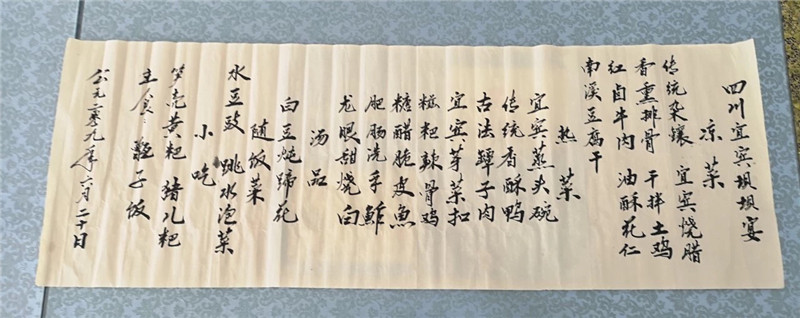 四川宜宾坝坝宴
凉菜
传统杂镶 宜宾烧腊
香熏排骨 干拌土鸡
红卤牛肉 油酥花仁
南溪豆腐干
热菜
宜宾蒸头碗
传统香酥鸭
古法罈子肉
宜宾芽菜扣
糍粑辣骨鸡
糖醋脆皮鱼
肥肠洗手鲊
龙眼甜烧白
汤品
白豆炖蹄花
随饭菜
水豆豉 跳水泡菜
小吃
笋壳黄粑 猪儿粑
主食 甑子饭
公元二零一九年六月二十日